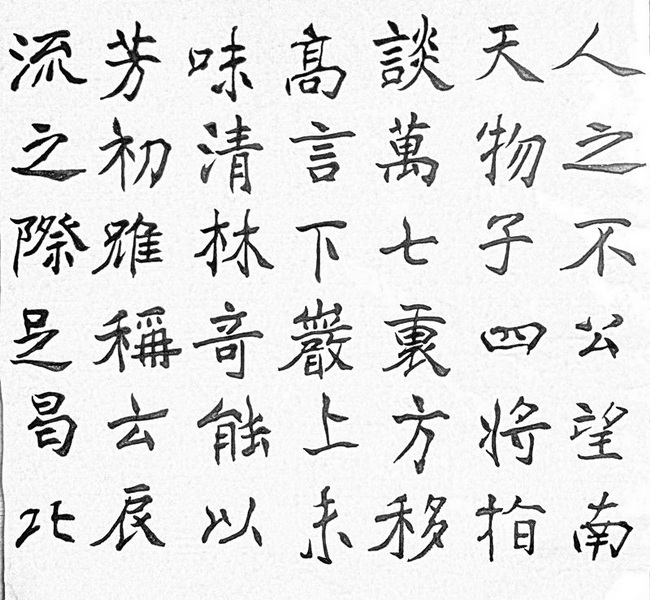 人之不公望南
天物子四將指
談萬七裏方移
高言下巖上未
味清林奇能以
芳初雖稱玄
流之際是昌北